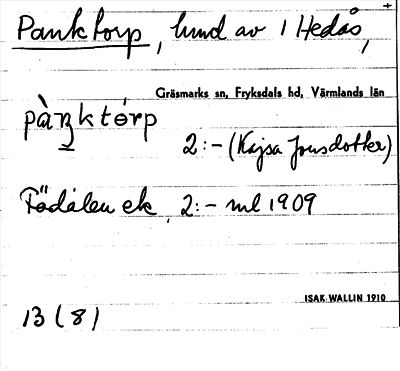 Panktorp, hund av 1 Hedås,
Gräsmarks sn, Fryksdals hd, Värmlands län
pàŋktór̀p
2:- (Kajsa Jonsdotter)
ek, 2:- ml 1909
ISAK WALLIN 1910
13 (8)